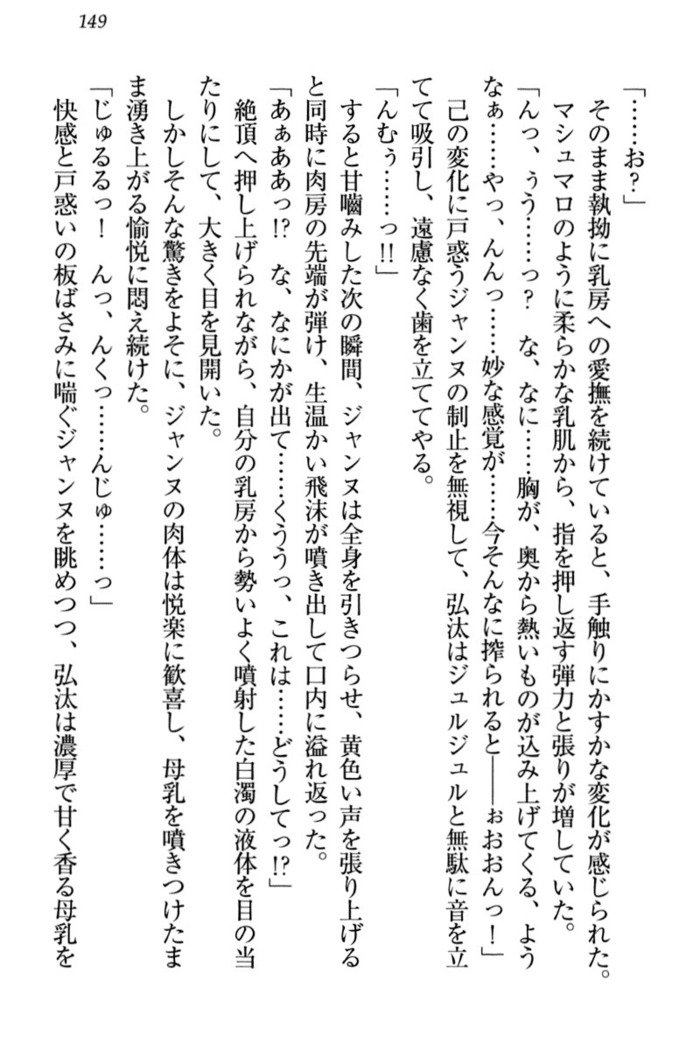 149
「……お？」
そのまま執拗に乳房への愛撫を続けていると、手触りにかすかな変化が感じられた。
マシュマロのように柔らかな乳肌から、指を押し返す弾力と張りが増していた。
「んっ、ぅう……っ？　な、なに……胸が、奥から熱いものが込み上げてくる、よう
なぁ……やっ、んんっ……妙な感覚が……今そんなに搾られると――ぉおおんっ！」
己の変化に戸惑うジャンヌの制止を無視して、弘汰はジュルジュルと無駄に音を立
てて吸引し、遠慮なく歯を立ててやる。
「んむぅ……っ!!」
すると甘嚙みした次の瞬間、ジャンヌは全身を引きつらせ、黄色い声を張り上げる
と同時に肉房の先端が弾け、生温かい飛沫が噴き出して口内に溢れ返った。
「あぁああっ!?　な、なにかが出て……くううっ、これは……どうしてっ!?」
絶頂へ押し上げられながら、自分の乳房から勢いよく噴射した白濁の液体を目の当
たりにして、大きく目を見開いた。
しかしそんな驚きをよそに、ジャンヌの肉体は悦楽に歓喜し、母乳を噴きつけたま
ま湧き上がる愉悦に悶え続けた。
「じゅるるっ！　んっ、んくっ……んじゅ……っ」
快感と戸惑いの板ばさみに喘ぐジャンヌを眺めつつ、弘汰は濃厚で甘く香る母乳を